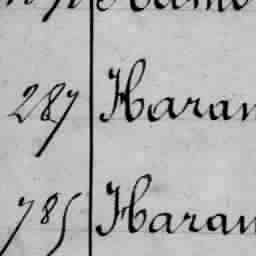 287 Haran
785 Haran